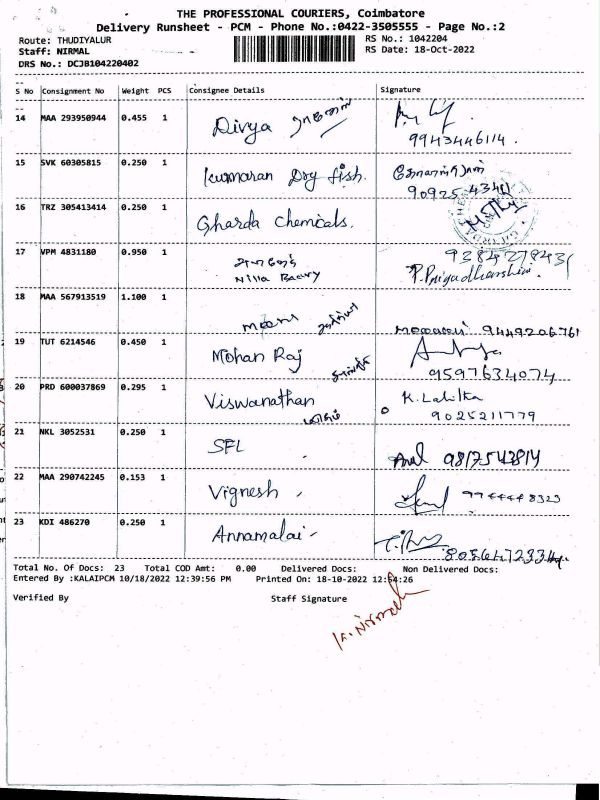 THE PROFESSIONAL COURIERS, Coimbatore
Delivery Runsheet - PCM - Phone No.:0422-3505555 - Page No.:2
Route: THUDIYALUR
RS No.: 1042204
Staff: NIRMAL
RS Date: 18-Oct-2022
DRS No.: DCJB104220402
S No Consignment No Weight PCS Consignee Details Signature
14 MAA 293950944 0.455 1 Divya
9943446114.
15 SVK 60305815 0.250 1 Kumaran Dry fish.
90925 43411
16 TRZ 305413414 0.250 1 Gharda Chemicals.
17 VPM 4831180 0.950 1
Nilla Bakery P. Priyadharshini.
18 MAA 567913519 1.100 1
9449206761
19 TUT 6214546 0.450 1 Mohan Raj
9597634074
20 PRD 600037869 0.295 1 Viswanathan K. Lalitka
9025211779
21 NKL 3052531 0.250 1 SFL
9817543814
22 MAA 290742245 0.153 1 Vignesh
23 KDI 486270 0.250 1 Annamalai
Total No. Of Docs: 23 Total COD Amt: 0.00 Delivered Docs: Non Delivered Docs:
Entered By :KALAIPCM 10/18/2022 12:39:56 PM Printed On: 18-10-2022 12:54:26
Verified By Staff Signature
K. Nirmal